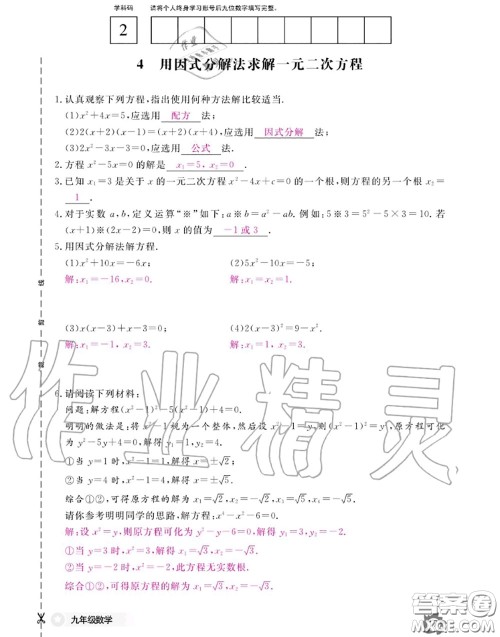 学科码 请将个人终身学习账号后九位数字填写完整。
2
4 用因式分解法求解一元二次方程
1.认真观察下列方程,指出使用何种方法解比较适当.
(1)x²+4x=5,应选用 配方 法;
(2)2(x+2)(x-1)=(x+2)(x+4),应选用 因式分解 法;
(3)2x²-3x-3=0,应选用 公式 法.
2.方程x²-5x=0的解是 x₁=5, x₂=0 .
3.已知x₁=3是关于x的一元二次方程x²-4x+c=0的一个根,则方程的另一个根x₂=
1 .
4.对于实数a,b,定义运算“※”如下:a※b=a²-ab.例如:5※3=5²-5×3=10.若
(x+1)※(2x-2)=0,则x的值为 -1或3 .
5.用因式分解法解方程.
(1)x²+10x=-6x; (2)5x²-10x=-5;
解:x₁=-16,x₂=0. 解:x₁=x₂=1.
(3)x(x-3)+x-3=0; (4)2(x-3)²=9-x².
解:x₁=-1,x₂=3. 解:x₁=1,x₂=3.
6.请阅读下列材料:
问题:解方程(x²-1)²-5(x²-1)+4=0.
明明的做法是:将x²-1视为一个整体,然后设x²-1=y,则(x²-1)²=y²,原方程可化
为y²-5y+4=0,解得y₁=1,y₂=4.
①当y=1时,x²-1=1,解得x=±√2;
②当y=4时,x²-1=4,解得x=±√5.
综合①②,可得原方程的解为x₁=√2,x₂=-√2,x₃=√5,x₄=-√5.
请你参考明明同学的思路,解方程x⁴-x²-6=0.
解:设x²=y,则原方程可化为y²-y-6=0,解得y₁=3,y₂=-2.
①当y=3时,x²=3,解得x₁=√3,x₂=-√3.
②当y=-2时,x²=-2,此方程无实数根.
综合①②,可得原方程的解为x₁=√3,x₂=-√3.
九年级数学
作业精灵